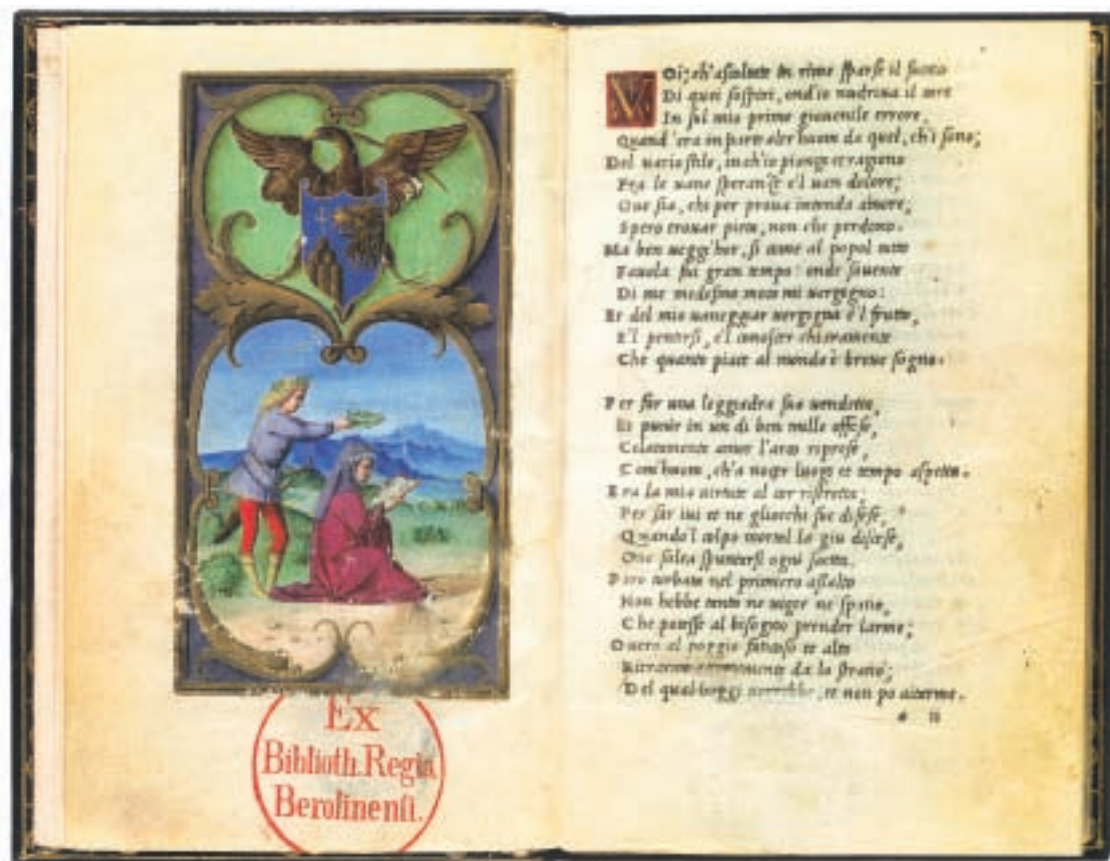 Ex
Biblioth. Regia
Berolinensi.
VOi, ch'ascoltate in rime sparse il suono
Di quei sospiri, ond'io nudriua il core
In sul mio primo giouenile errore,
Quand'era in parte altr'huom da quel, ch'i sono;
Del uario stile, in ch'io piango et ragiono
Fra le uane speranze e'l uan dolore;
Oue sia, chi per proua intenda amore,
Spero trouar pieta, non che perdono.
Ma ben ueggi'hor, si come al popol tutto
Fauola fui gran tempo: onde souente
Di me medesmo meco mi uergogno:
Et del mio uaneggiar uergogna è'l frutto,
E'l pentirsi, e'l conoscer chiaramente
Che quanto piace al mondo è breue sogno.
Per far una leggiadra sua uendetta,
Et punir in un di ben mille offese,
Celatamente amor l'arco riprese,
Com'huom, ch'a nocer luogo et tempo aspetta.
Era la mia uirtute al cor ristretta;
Per far iui et ne gliocchi sue difese;
Quando'l colpo mortal la giu discese,
Oue solea spuntarsi ogni saetta.
Pero turbata nel primiero assalto
Non hebbe tanto ne uigor ne spatio,
Che potesse al bisogno prender larme;
Ouero al poggio faticoso et alto
Ritrarmi accortamente da lo stratio;
Del qual hoggi uorrebbe, et non po aitarme.
a II